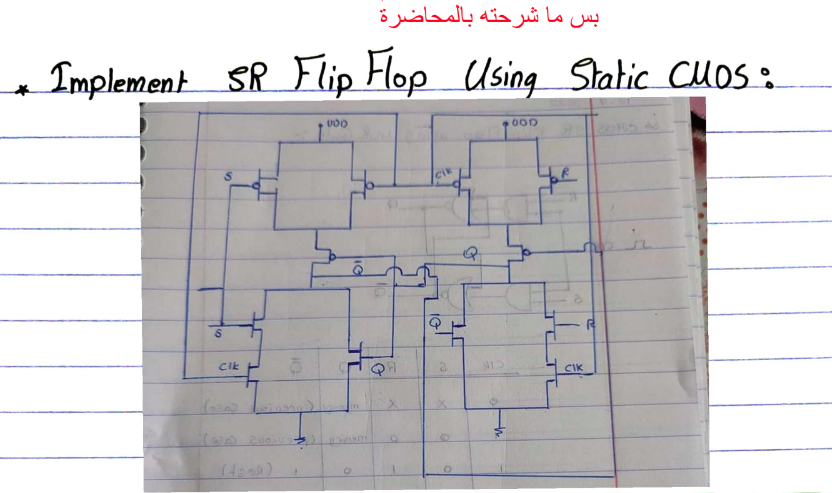 بس ما شرحته بالمحاضرة
* Implement SR Flip Flop Using Static CMOS :
VDD
VDD
S
Clk
R
Q̅
Q
S
Q̅
R
Clk
Q
Clk